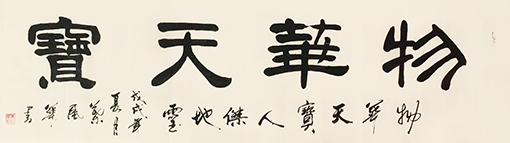 物華天寶
物華天寶人傑地靈
戊戌年
夏月